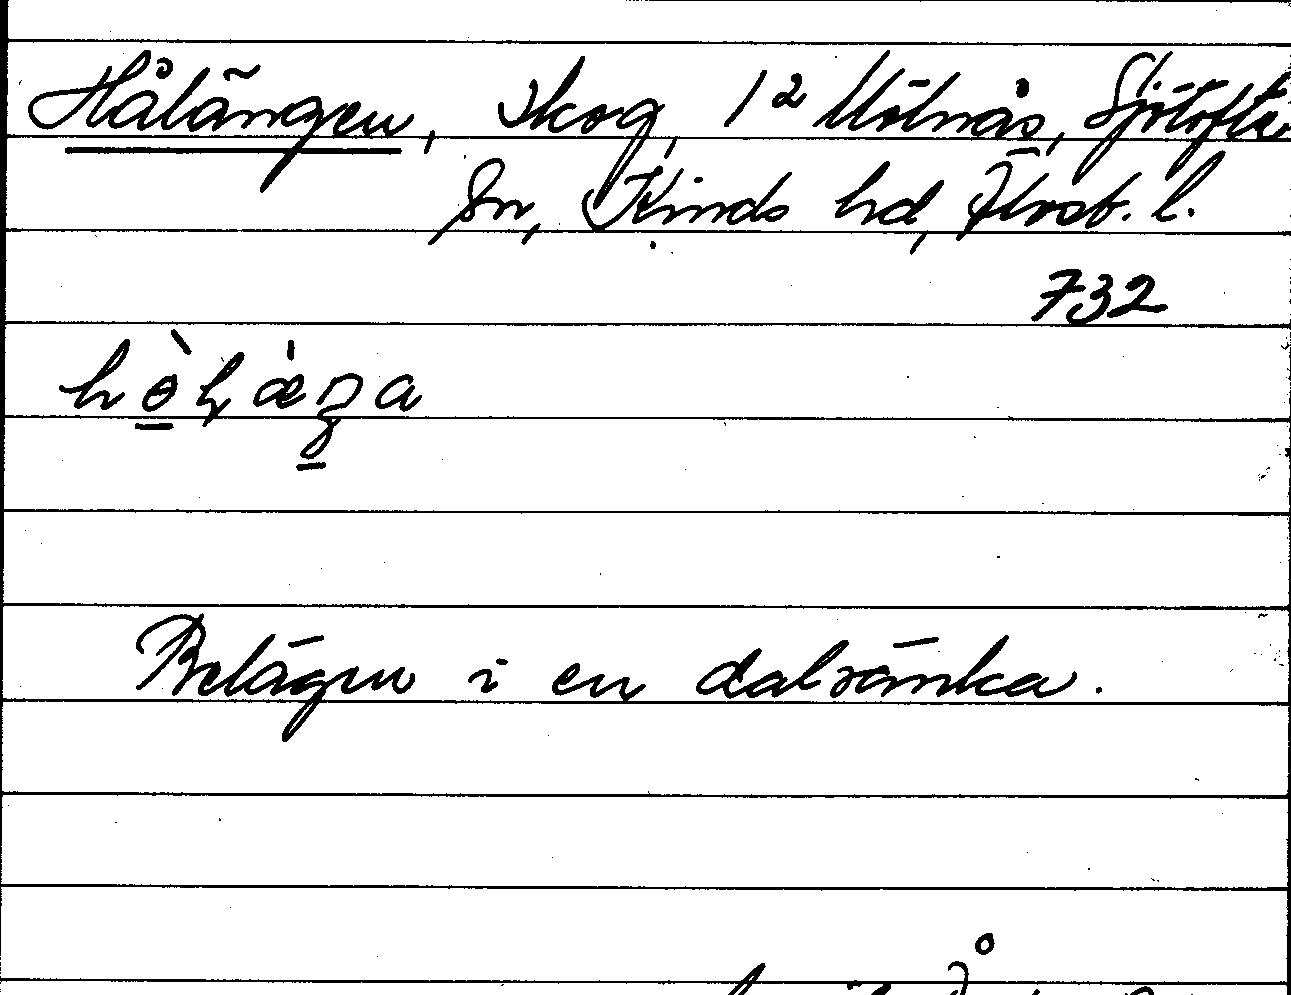 Hålängen, Skog, 1² Mölnås, Sjötofta
Sn, Kinds hd, Älvsb. l.
732
Belägen i en dalsänka.